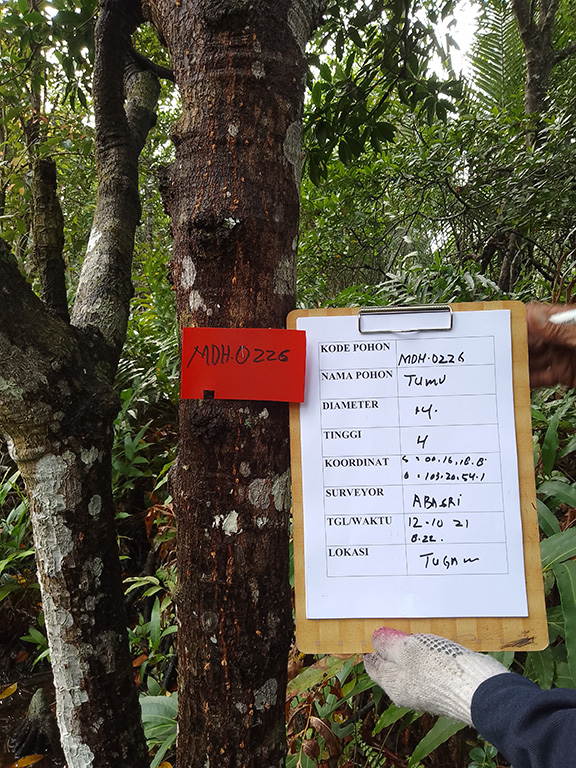 MDH.0226
KODE POHON MDH.0226
NAMA POHON TUMU
DIAMETER 14.
TINGGI 4
KOORDINAT S = 00.16.18.8
0 = 103.20.54.1
SURVEYOR ABASRI
TGL/WAKTU 12-10 21
8.22.
LOKASI